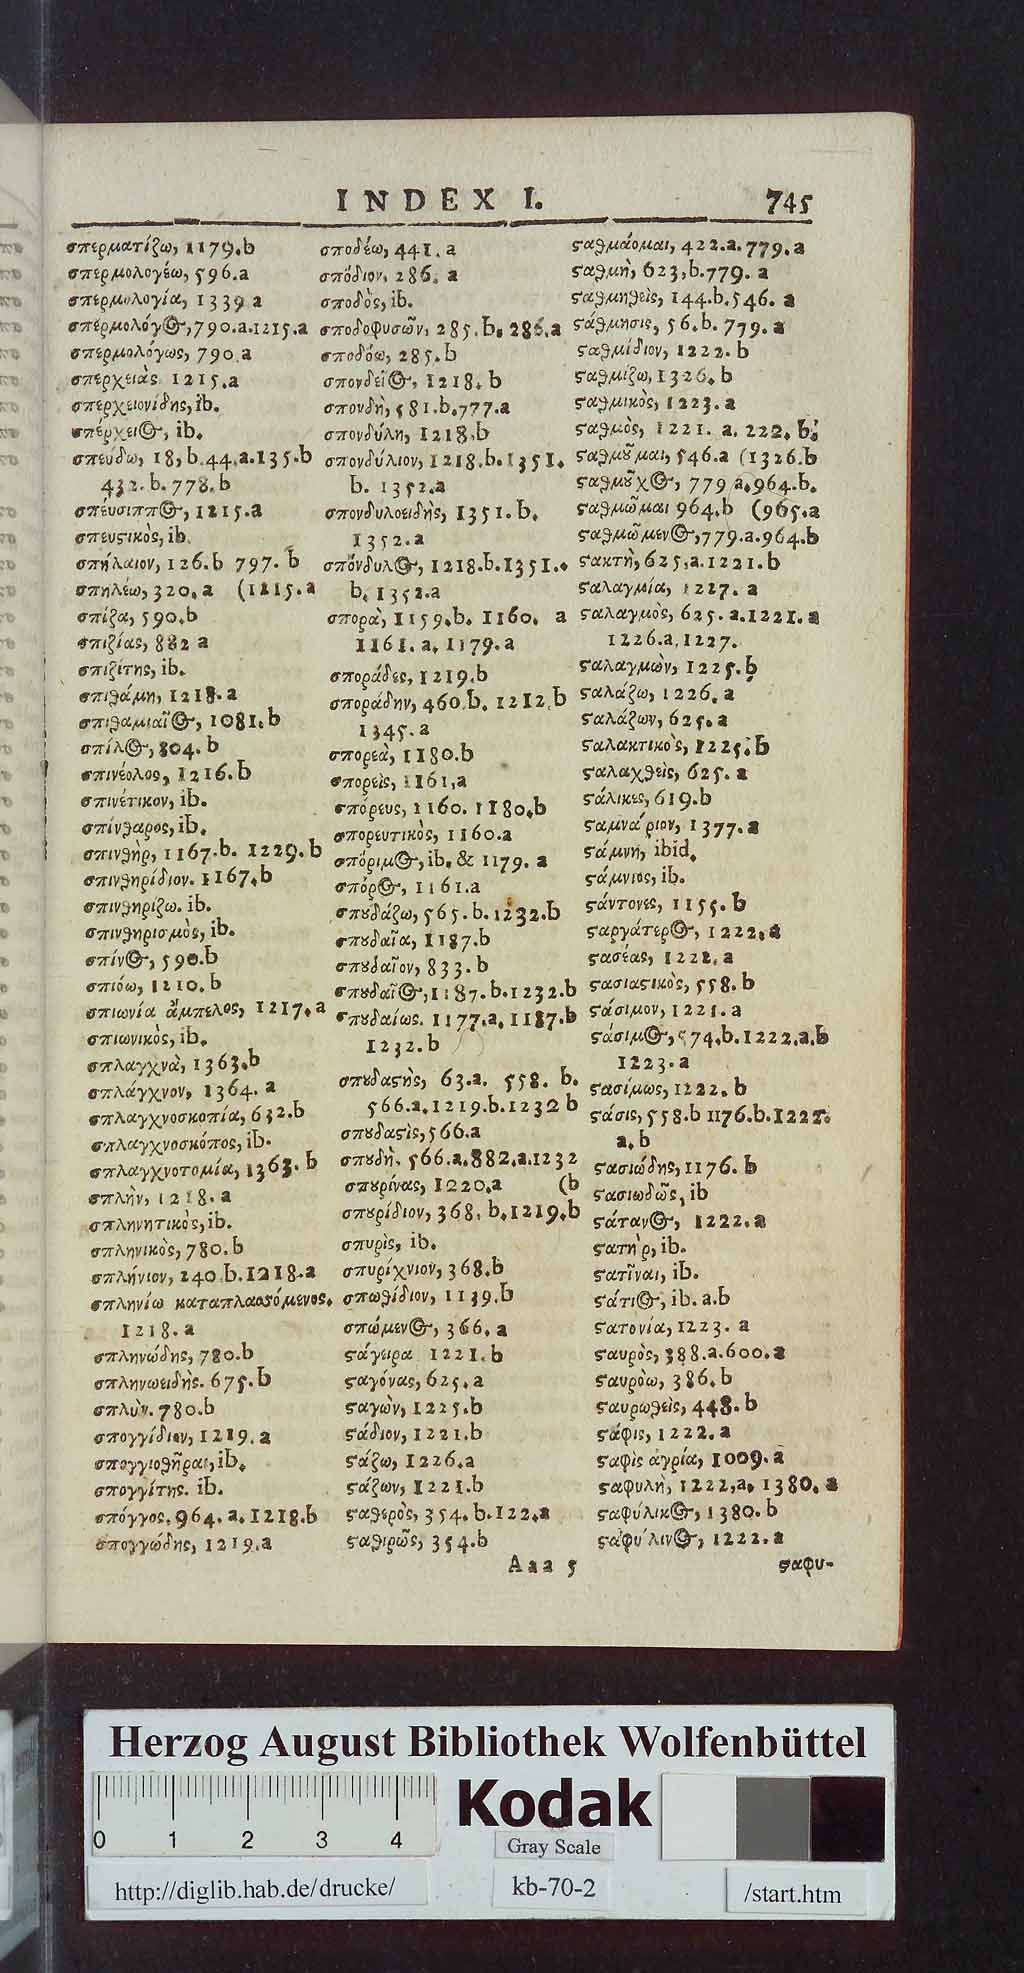 INDEX I. 745
σπερματίζω, 1179.b
σπερμολογέω, 596.a
σπερμολογία, 1339 a
σπερμολόγος, 790.a.1215.a
σπερμολόγως, 790.a
σπερχειὰς 1215.a
σπερχειονίδης, ib.
σπέρχειος, ib.
σπεύδω, 18, b.44.a.135.b
432.b.778.b
σπέυσιππος, 1215.a
σπευςικὸς, ib.
σπήλαιον, 126.b 797. b
σπηλέω, 320.a (1215.a
σπίζα, 590.b
σπιζίας, 882 a
σπιζίτης, ib.
σπιθάμη, 1218.a
σπιθαμιαῖος, 1081.b
σπίλος, 804. b
σπινέολος, 1216.b
σπινέτικον, ib.
σπίνθαρος, ib.
σπινθὴρ, 1167.b. 1229. b
σπινθηρίδιον. 1167.b
σπινθηρίζω. ib.
σπινθηρισμὸς, ib.
σπίνος, 590.b
σπιόω, 1210.b
σπιωνία ἄμπελος, 1217.a
σπιωνικὸς, ib.
σπλαγχνὰ, 1363.b
σπλάγχνον, 1364. a
σπλαγχνοσκοπία, 632.b
σπλαγχνοσκόπος, ib.
σπλαγχνοτομία, 1363. b
σπλὴν, 1218. a
σπληνητικὸς, ib.
σπληνικὸς, 780.b
σπλήνιον, 240.b.1218.a
σπληνίω καταπλασσόμενος.
1218. a
σπληνώδης, 780.b
σπληνωειδὴς. 675.b
σπλὺν. 780.b
σπογγίδιον, 1219. a
σπογγιοθῆραι, ib.
σπογγίτης. ib.
σπόγγος. 964. a. 1218.b
σπογγώδης, 1219.a
σποδέω, 441. a
σπόδιον, 286. a
σποδὸς, ib.
σποδοφυσῶν, 285. b. 286.a
σποδόω, 285. b
σπονδεῖος, 1218. b
σπονδὴ, 581.b.777.a
σπονδύλη, 1218.b
σπονδύλιον, 1218.b.1351.
b. 1352.a
σπονδυλοειδὴς, 1351. b.
1352.a
σπόνδυλος, 1218.b.1351.
b. 1352.a
σπορὰ, 1159.b. 1160. a
1161. a. 1179. a
σποράδες, 1219.b
σποράδην, 460.b. 1212.b
1345. a
σπορεὰ, 1180.b
σπορεὶς, 1161.a
σπόρευς, 1160. 1180.b
σπορευτικὸς, 1160.a
σπόριμος, ib. & 1179. a
σπόρος, 1161.a
σπȣδάζω, 565.b.1232.b
σπȣδαῖα, 1187.b
σπȣδαῖον, 833.b
σπȣδαῖος, 1187.b.1232.b
σπȣδαίως. 1177.a. 1187.b
1232.b
σπȣδαςὴς, 63.a. 558. b.
566.a.1219.b.1232 b
σπȣδαςὶς, 566.a
σπȣδὴ. 566.a.882.a.1232
σπȣρίνας, 1220.a (b
σπȣρίδιον, 368. b.1219.b
σπυρὶς, ib.
σπυρίχνιον, 368.b
σπωθίδιον, 1139.b
σπώμενος, 366. a
ςάγειρα 1221.b
ςαγόνας, 625. a
ςαγὼν, 1225.b
ςάδιον, 1221.b
ςάζω, 1226.a
ςάζων, 1221.b
ςαθερὸς, 354. b.122.a
ςαθιρῶς, 354.b
ςαθμάομαι, 422.a.779. a
ςαθμὴ, 623.b.779. a
ςαθμηθεὶς, 144.b.546. a
ςάθμησις, 56.b. 779. a
ςαθμίδιον, 1222. b
ςαθμίζω, 1326. b
ςαθμικὸς, 1223. a
ςαθμὸς, 1221. a. 222. b.
ςαθμȣ͂μαι, 546.a (1326.b
ςαθμȣ͂χος, 779 a.964.b.
ςαθμῶμαι 964.b (965.a
ςαθμῶμενος, 779.a.964.b
ςακτὴ, 625.a.1221. b
ςαλαγμία, 1227. a
ςαλαγμὸς, 625. a.1221. a
1226.a, 1227.
ςαλαγμὼν, 1225.b
ςαλάζω, 1226. a
ςαλάζων, 625. a
ςαλακτικὸς, 1225. b
ςαλαχθεὶς, 625. a
ςάλικες, 619.b
ςαμνάριον, 1377. a
ςάμνη, ibid.
ςάμνιος, ib.
ςάντονες, 1155. b
ςαργάτερος, 1222. a
ςασέας, 1222. a
ςασιαςικὸς, 558. b
ςάσιμον, 1221. a
ςάσιμος, 574.b.1222.a.b
1223. a
ςασίμως, 1222. b
ςάσις, 558.b 1176.b.1222.
a. b
ςασιώδης, 1176. b
ςασιωδῶς, ib
ςάτανος, 1222. a
ςατὴρ, ib.
ςατῖναι, ib.
ςάτιος, ib. a.b
ςατονία, 1223. a
ςαυρὸς, 388.a.600.a
ςαυρόω, 386.b
ςαυρωθεὶς, 448. b
ςάφις, 1222. a
ςαφὶς ἀγρία, 1009. a
ςαφυλὴ, 1222.a. 1380. a
ςαφύλικος, 1380. b
ςαφύλινος, 1222. a
Aaa 5 ςαφυ-
Herzog August Bibliothek Wolfenbüttel
0 1 2 3 4
Kodak
Gray Scale
http://diglib.hab.de/drucke/ kb-70-2 /start.htm